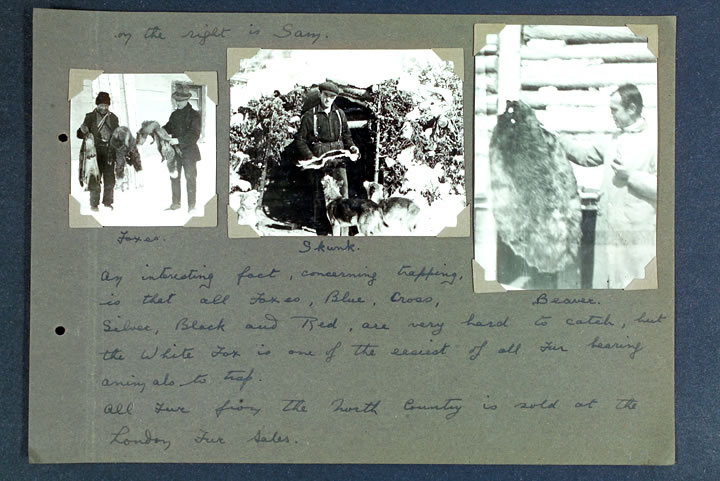 on the right is Sam.
Foxes.
Skunk.
Beaver.
An interesting fact, concerning trapping,
is that all Foxes, Blue, Cross,
Silver, Black and Red, are very hard to catch, but
the White Fox is one of the easiest of all Fur bearing
animals to trap.
All Fur from the North Country is sold at the
London Fur Sales.